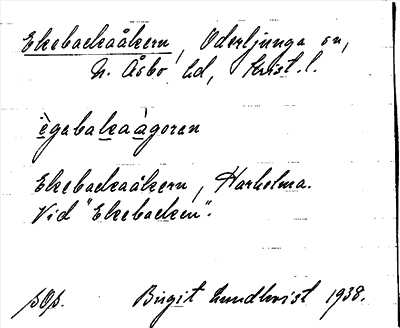 Ekebackaåkern, Oderljunga sn,
N. Åsbo hd, Krist. l.
ègabakaàgoran
Ekebackaåkern, Harholma.
Vid "Ekebacken".
Birgit Lundkvist 1938.